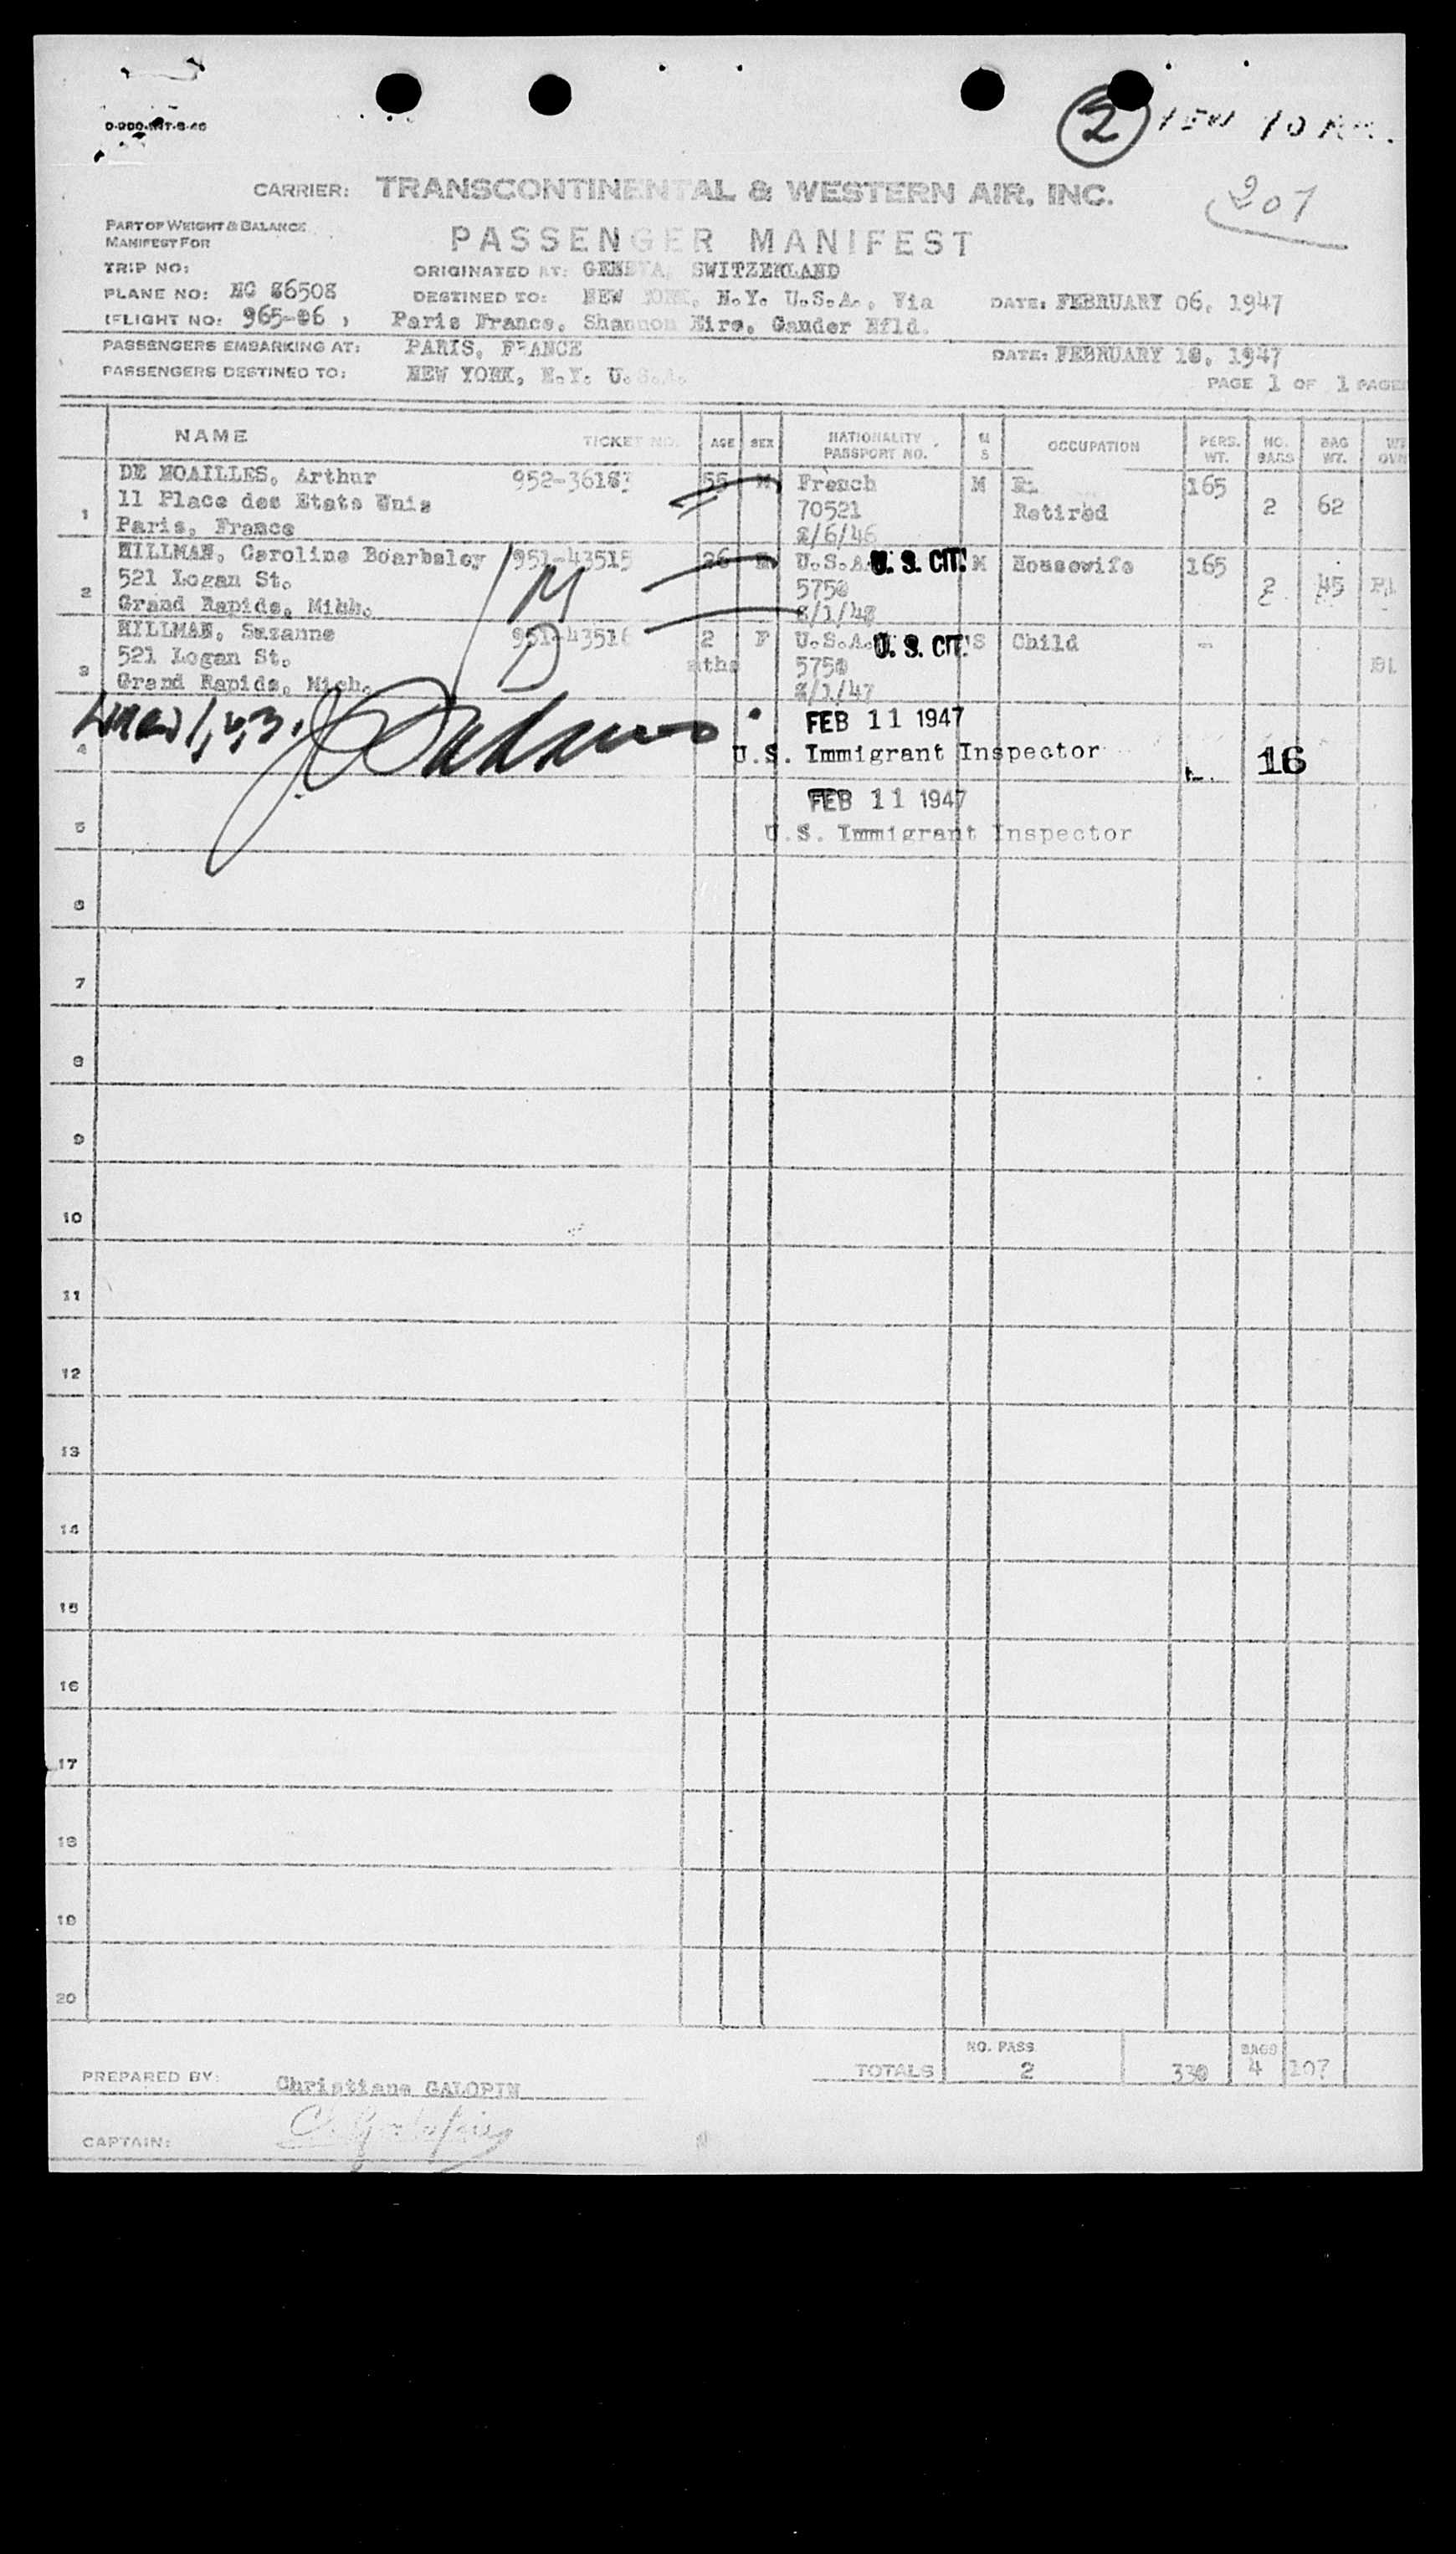 ② NEW YORK.
207
CARRIER: TRANSCONTINENTAL & WESTERN AIR, INC.
PART OF WEIGHT & BALANCE
MANIFEST FOR
PASSENGER MANIFEST
TRIP NO:
ORIGINATED AT: GENEVA, SWITZERLAND
PLANE NO: NC 86508
DESTINED TO: NEW YORK, N.Y. U.S.A., Via DATE: FEBRUARY 06, 1947
(FLIGHT NO: 965-06 ) Paris France, Shannon Eire, Gander Nfld.
PASSENGERS EMBARKING AT: PARIS, FRANCE DATE: FEBRUARY 10, 1947
PASSENGERS DESTINED TO: NEW YORK, N.Y. U.S.A.
PAGE 1 OF 1 PAGES
NAME TICKET NO. AGE SEX NATIONALITY PASSPORT NO. M S OCCUPATION PERS. WT. NO. BAGS BAG WT.
DE NOAILLES, Arthur 952-36183 55 M French M Retired 165
11 Place des Etats Unis 70521 2 62
1 Paris, France 2/6/46
HILLMAN, Caroline Boarbsley 951-43515 26 U.S.A. U. S. CIT. M Housewife 165
521 Logan St. 5750 2 45
2 Grand Rapids, Mihh. 8/1/48
HILLMAN, Suzanne 951-43516 2 F U.S.A. U. S. CIT. S Child -
521 Logan St. mths 5750
3 Grand Rapids, Mich. 8/1/47
M
D
Lines 1, 2, 3.
FEB 11 1947
4 U.S. Immigrant Inspector 16
FEB 11 1947
5 U.S. Immigrant Inspector
6
7
8
9
10
11
12
13
14
15
16
17
18
19
20
NO. PASS. BAGS
TOTALS 2 330 4 107
PREPARED BY: Christiane GALOPIN
C. Galopin
CAPTAIN: